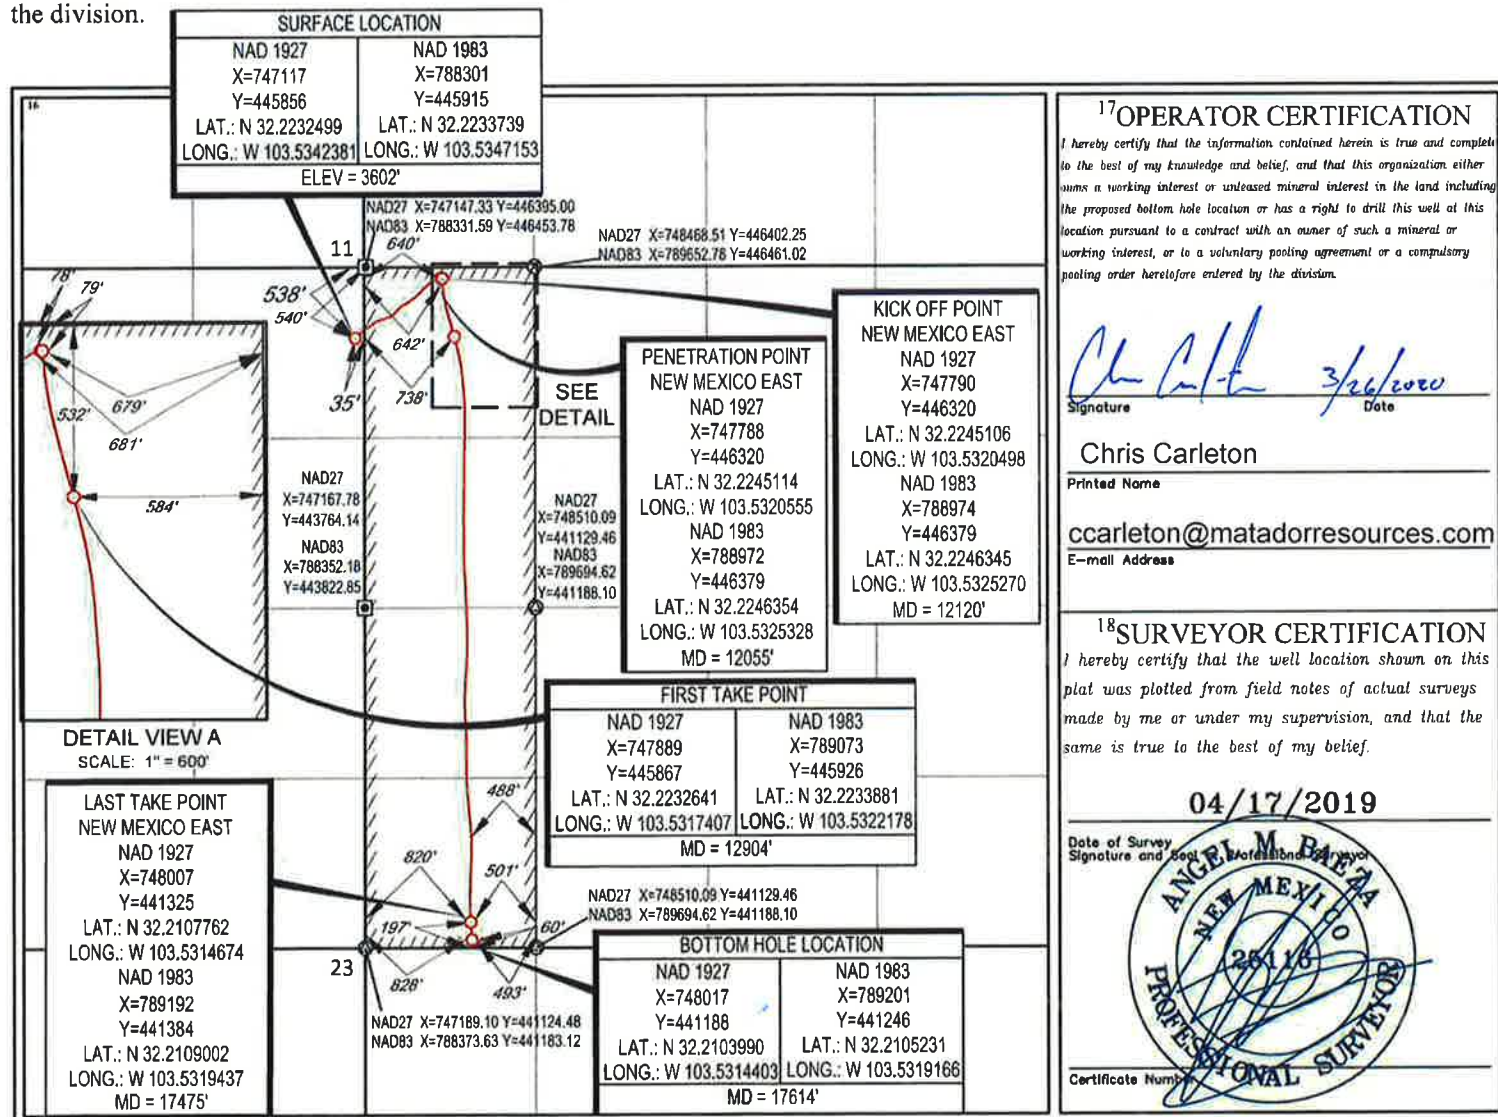 the division.
SURFACE LOCATION
NAD 1927
X=747117
Y=445856
LAT.: N 32.2232499
LONG.: W 103.5342381
NAD 1983
X=788301
Y=445915
LAT.: N 32.2233739
LONG.: W 103.5347153
ELEV = 3602'
16
NAD27 X=747147.33 Y=446395.00
NAD83 X=788331.59 Y=446453.78
NAD27 X=748468.51 Y=446402.25
NAD83 X=789652.78 Y=446461.02
11
640'
538'
540'
642'
35'
738'
SEE
DETAIL
78'
79'
679'
532'
681'
584'
DETAIL VIEW A
SCALE: 1" = 600'
NAD27
X=747167.78
Y=443764.14
NAD83
X=788352.18
Y=443822.85
NAD27
X=748510.09
Y=441129.46
NAD83
X=789694.62
Y=441188.10
KICK OFF POINT
NEW MEXICO EAST
NAD 1927
X=747790
Y=446320
LAT.: N 32.2245106
LONG.: W 103.5320498
NAD 1983
X=788974
Y=446379
LAT.: N 32.2246345
LONG.: W 103.5325270
MD = 12120'
PENETRATION POINT
NEW MEXICO EAST
NAD 1927
X=747788
Y=446320
LAT.: N 32.2245114
LONG.: W 103.5320555
NAD 1983
X=788972
Y=446379
LAT.: N 32.2246354
LONG.: W 103.5325328
MD = 12055'
FIRST TAKE POINT
NAD 1927
X=747889
Y=445867
LAT.: N 32.2232641
LONG.: W 103.5317407
NAD 1983
X=789073
Y=445926
LAT.: N 32.2233881
LONG.: W 103.5322178
MD = 12904'
LAST TAKE POINT
NEW MEXICO EAST
NAD 1927
X=748007
Y=441325
LAT.: N 32.2107762
LONG.: W 103.5314674
NAD 1983
X=789192
Y=441384
LAT.: N 32.2109002
LONG.: W 103.5319437
MD = 17475'
488'
820'
501'
197'
60'
828'
493'
23
NAD27 X=748510.09 Y=441129.46
NAD83 X=789694.62 Y=441188.10
NAD27 X=747189.10 Y=441124.48
NAD83 X=788373.63 Y=441183.12
BOTTOM HOLE LOCATION
NAD 1927
X=748017
Y=441188
LAT.: N 32.2103990
LONG.: W 103.5314403
NAD 1983
X=789201
Y=441246
LAT.: N 32.2105231
LONG.: W 103.5319166
MD = 17614'
17 OPERATOR CERTIFICATION
I hereby certify that the information contained herein is true and complete
to the best of my knowledge and belief, and that this organization either
owns a working interest or unleased mineral interest in the land including
the proposed bottom hole location or has a right to drill this well at this
location pursuant to a contract with an owner of such a mineral or
working interest, or to a voluntary pooling agreement or a compulsory
pooling order heretofore entered by the division.
3/26/2020
Signature Date
Chris Carleton
Printed Name
ccarleton@matadorresources.com
E-mail Address
18 SURVEYOR CERTIFICATION
I hereby certify that the well location shown on this
plat was plotted from field notes of actual surveys
made by me or under my supervision, and that the
same is true to the best of my belief.
04/17/2019
Date of Survey
Signature and Seal of Professional Surveyor
ANGEL M. BAEZA
NEW MEXICO
25116
PROFESSIONAL SURVEYOR
Certificate Number